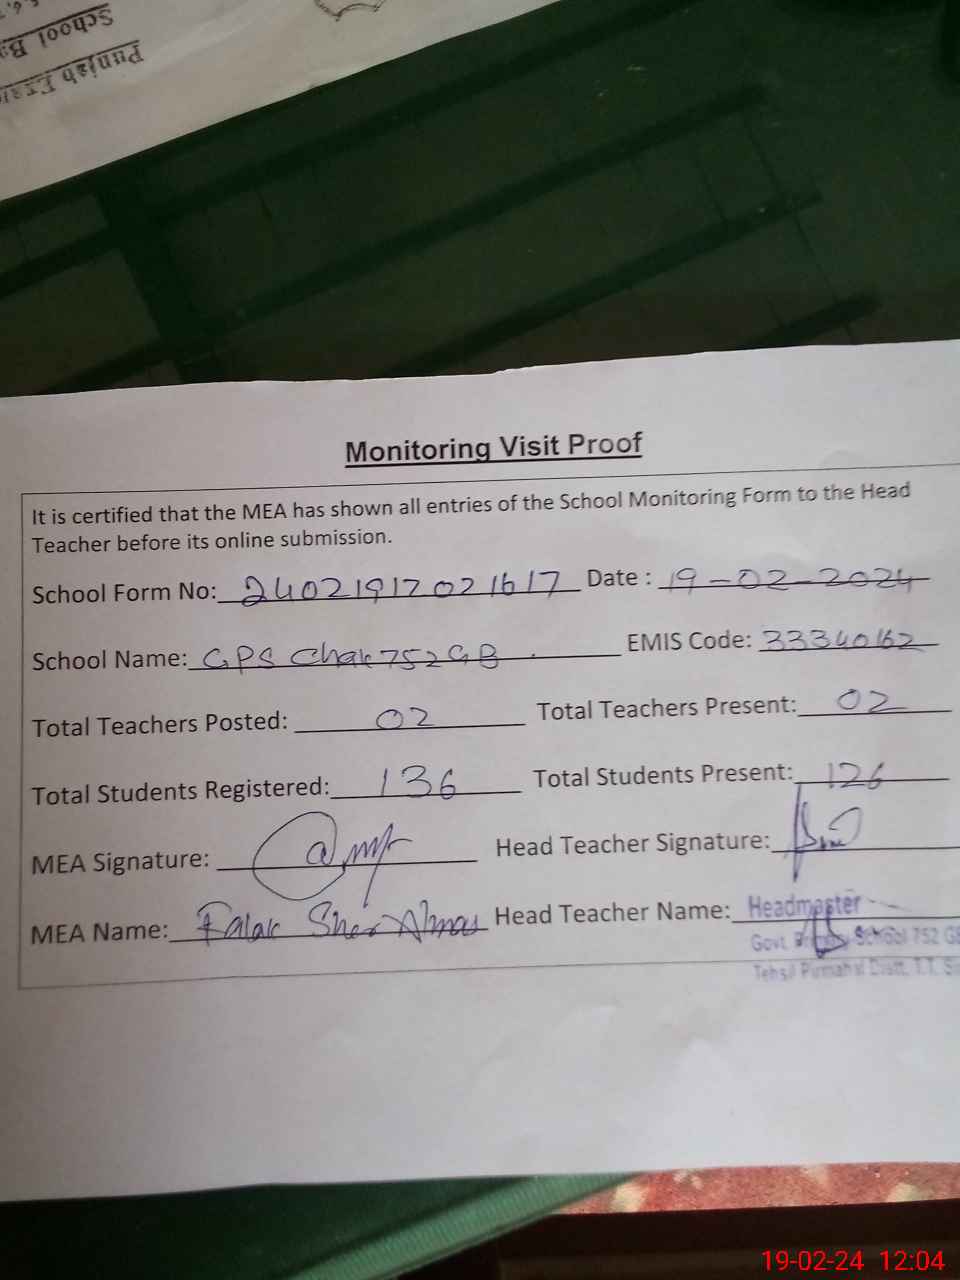 School Ba
Punjab Exa
Monitoring Visit Proof
It is certified that the MEA has shown all entries of the School Monitoring Form to the Head
Teacher before its online submission.
School Form No: 24021912021617 Date : 19-02-2024
School Name: GPS Chak 752GB EMIS Code: 33340162
Total Teachers Posted: 02 Total Teachers Present: 02
Total Students Registered: 136 Total Students Present: 126
MEA Signature: Head Teacher Signature:
MEA Name: Falak Sher Almas Head Teacher Name: Headmaster
Govt. Primary School 752 GB
Tehsil Pirmahal Distt. T.T. Si
19-02-24 12:04